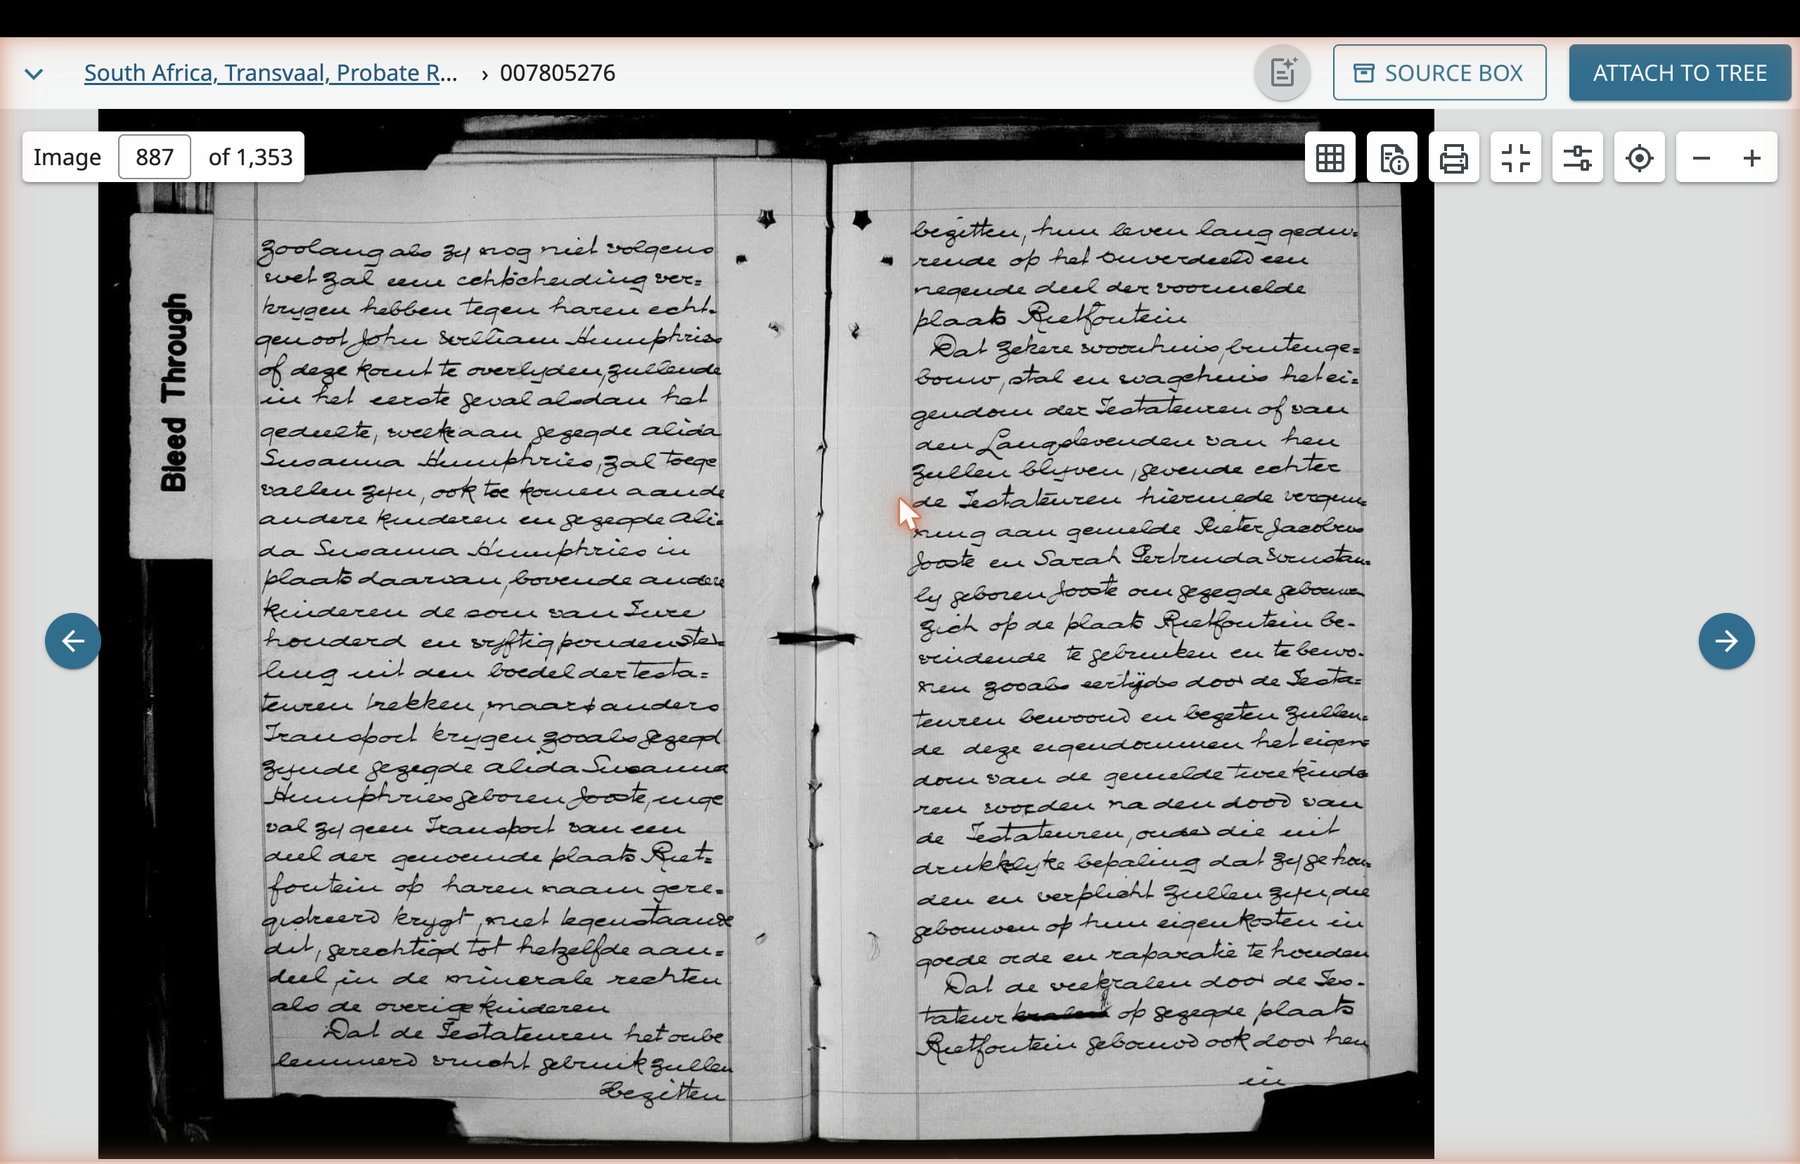 South Africa, Transvaal, Probate R... › 007805276
SOURCE BOX
ATTACH TO TREE
Image 887 of 1,353
Bleed Through
zoolang als zy nog niet volgens
wet zal een echtscheiding ver=
krygen hebben tegen haren echt-
genoot John William Humphries
of deze komt te overlyden, zullende
in het eerste geval alsdan het
gedeelte, welk aan gezegde Alida
Susanna Humphries, zal toege
vallen zyn, ook toe komen aan de
andere kinderen en gezegde Ali=
da Susanna Humphries in
plaats daarvan, bovende andere
kinderen de som van Twee
honderd en vyftig ponden ster=
ling uit den boedel der testa=
teuren trekken, maar anders
Transport krygen zooals gezegd
zynde gezegde Alida Susanna
Humphries geboren Jooste, inge
val zy geen Transport van een
deel der genoemde plaats Riet=
fontein op haren naam gere=
gistreerd krygt, niet tegenstaande
dit, gerechtigd tot hetzelfde aan=
deel in de minerale rechten
als de overige kinderen
Dat de Testateuren het onbe
lemmerd vrucht gebruik zullen
bezitten
bezitten, hun leven lang gedu=
rende op het onverdeeld een
negende deel der voormelde
plaats Rietfontein
Dat zekere woonhuis, buitenge=
bouw, stal en wagehuis het ei=
gendom der Testateuren of van
den Langstlevenden van hen
zullen blyven, gevende echter
de Testateuren hiermede vergun=
ning aan gemelde Pieter Jacobus
Jooste en Sarah Gertruida
ly geboren Jooste om gezegde gebouwen
zich op de plaats Rietfontein be-
vindende te gebruiken en te bewo-
nen zooals eertyds door de Testa=
teuren bewoond en bezeten zullen=
de deze eigendommen het eigen=
dom van de gemelde twee kinde
ren worden na den dood van
de Testateuren, onder die uit
drukklyke bepaling dat zy gehou=
den en verplicht zullen zyn, die
gebouwen op hun eigen kosten in
goede orde en raparatie te houden
Dat de veekralen door de Tes-
tateur op gezegde plaats
Rietfontein gebouwd ook door hen
in